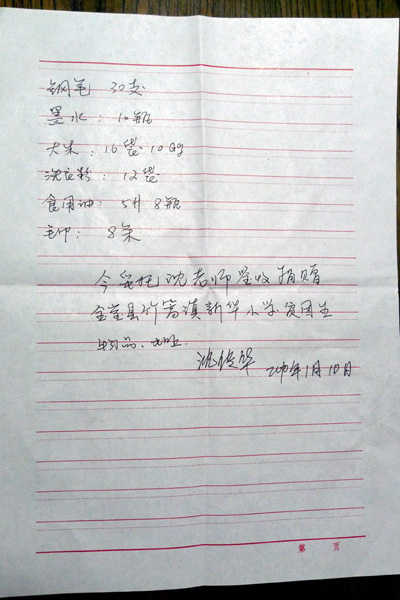 钢笔 30支
墨水：10瓶
大米：16袋 10kg
洗衣粉：12袋
食用油：5升 8瓶
毛巾：8条
今委托沈老师签收捐赠
金堂县竹篙镇新华小学贫困生
物品、
沈 华 年1月10日
第 页